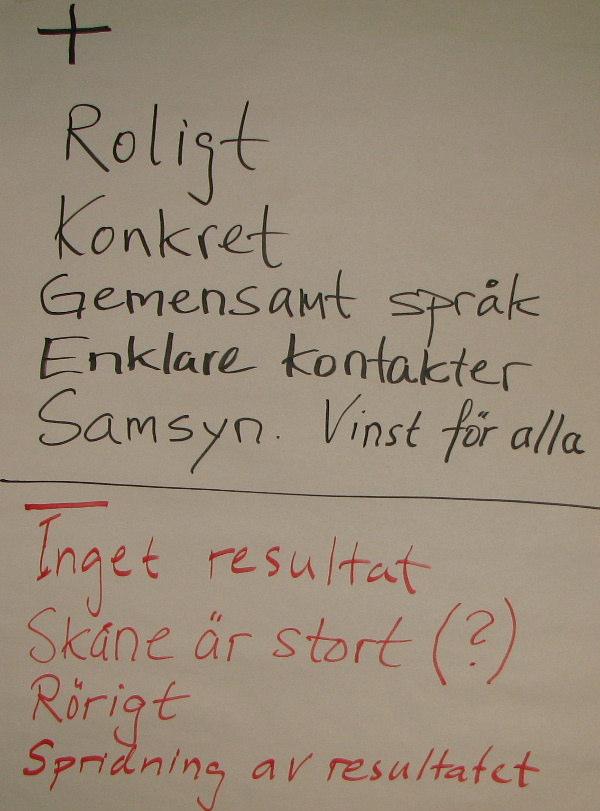 +
Roligt
Konkret
Gemensamt språk
Enklare kontakter
Samsyn. Vinst för alla
—
Inget resultat
Skåne är stort (?)
Rörigt
Spridning av resultatet